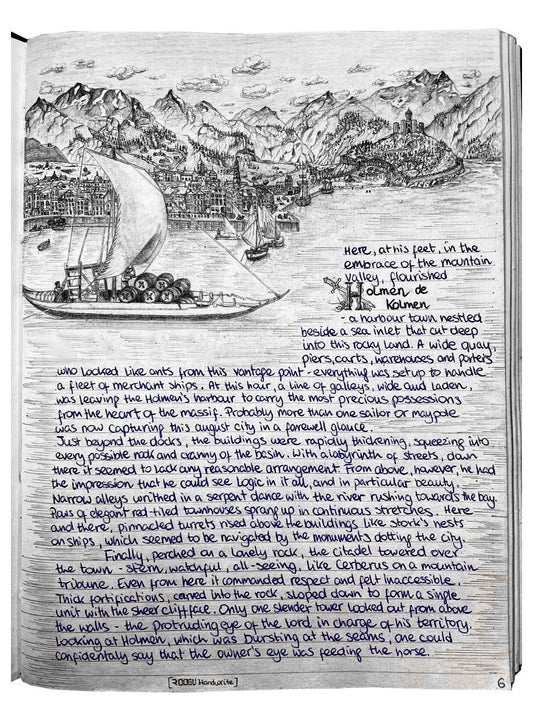 Here, at his feet, in the
embrace of the mountain
valley, flourished
Holmen de
Kolmen
- a harbour town nestled
beside a sea inlet that cut deep
into this rocky land. A wide quay,
piers, carts, warehouses and porters
who looked like ants from this vantage point - everything was setup to handle
a fleet of merchant ships. At this hour, a line of galleys, wide and laden,
was leaving the Holmen's harbour to carry the most precious possessions
from the heart of the massif. Probably more than one sailor or maypole
was now capturing this august city in a farewell glance.
Just beyond the docks, the buildings were rapidly thickening, squeezing into
every possible nook and cranny of the basin. With a labyrinth of streets, down
there it seemed to lack any reasonable arrangement. From above, however, he had
the impression that he could see logic in it all, and in particular beauty.
Narrow alleys writhed in a serpent dance with the river rushing towards the bay.
Rows of elegant red-tiled townhouses sprang up in continuous stretches. Here
and there, pinnacled turrets rised above the buildings like stork's nests
on ships, which seemed to be navigated by the monuments dotting the city.
Finally, perched on a lonely rock, the Citadel towered over
the town - stern, watchful, all-seeing, like Cerberus on a mountain
tribune. Even from here it commanded respect and felt inaccessible.
Thick fortifications, carved into the rock, sloped down to form a single
unit with the sheer cliff face. Only one slender tower looked out from above
the walls - the protruding eye of the lord in charge of his territory.
Looking at Holmen, which was bursting at the seams, one could
confidentally say that the owner's eye was feeding the horse.
[ROOGU Handwrite]
6